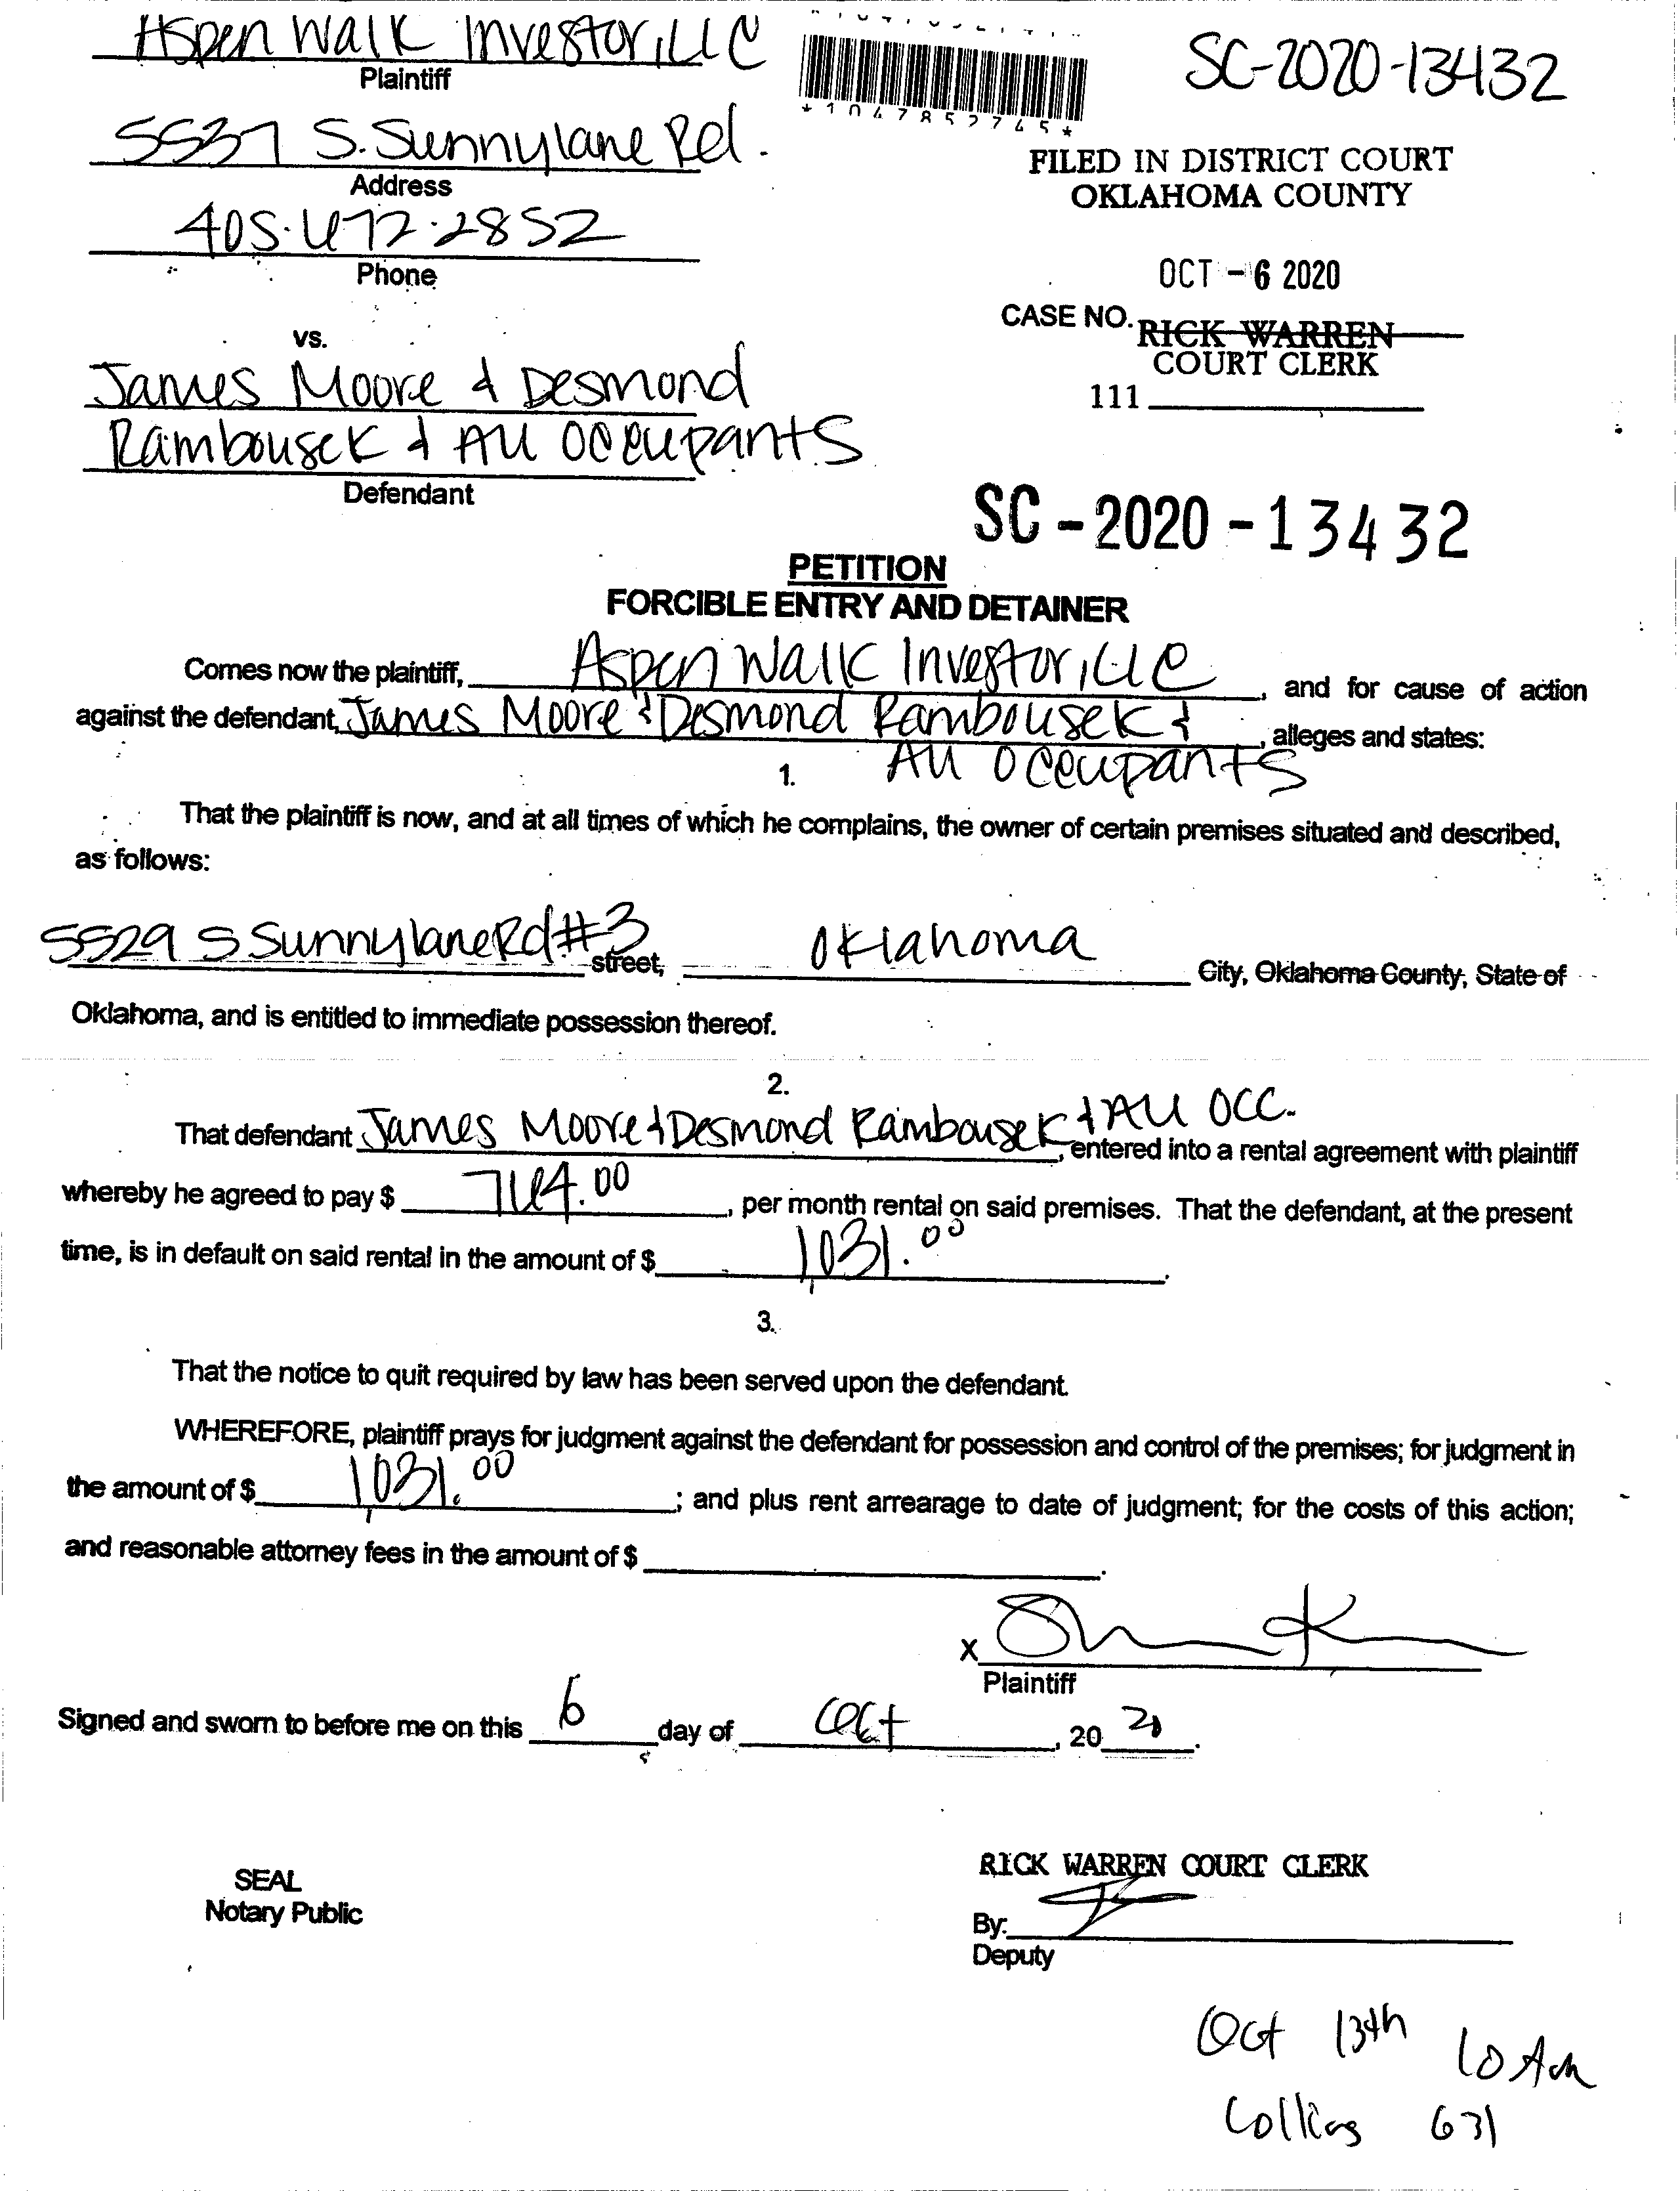 Aspen Walk Investor, LLC
Plaintiff
SC-2020-13432
*1047852745*
5537 S. Sunnylane Rd.
Address
FILED IN DISTRICT COURT
OKLAHOMA COUNTY
405.672.2852
Phone
OCT - 6 2020
CASE NO.
RICK WARREN
COURT CLERK
111
vs.
James Moore & Desmond
Rambousek & All Occupants
Defendant
SC - 2020 - 13432
PETITION
FORCIBLE ENTRY AND DETAINER
Comes now the plaintiff, Aspen Walk Investor, LLC, and for cause of action
against the defendant, James Moore & Desmond Rambousek &, alleges and states:
All Occupants
1.
That the plaintiff is now, and at all times of which he complains, the owner of certain premises situated and described,
as follows:
5529 S Sunnylane Rd #3 street, Oklahoma City, Oklahoma County, State of
Oklahoma, and is entitled to immediate possession thereof.
2.
That defendant James Moore & Desmond Rambousek & All OCC., entered into a rental agreement with plaintiff
whereby he agreed to pay $ .00, per month rental on said premises. That the defendant, at the present
time, is in default on said rental in the amount of $ 1,031.00.
3.
That the notice to quit required by law has been served upon the defendant.
WHEREFORE, plaintiff prays for judgment against the defendant for possession and control of the premises; for judgment in
the amount of $ 1,031.00; and plus rent arrearage to date of judgment; for the costs of this action;
and reasonable attorney fees in the amount of $.
X
Plaintiff
Signed and sworn to before me on this 6 day of Oct, 20 20.
RICK WARREN COURT CLERK
SEAL
Notary Public
By:
Deputy
Oct 13th 10 Am
Collins 631